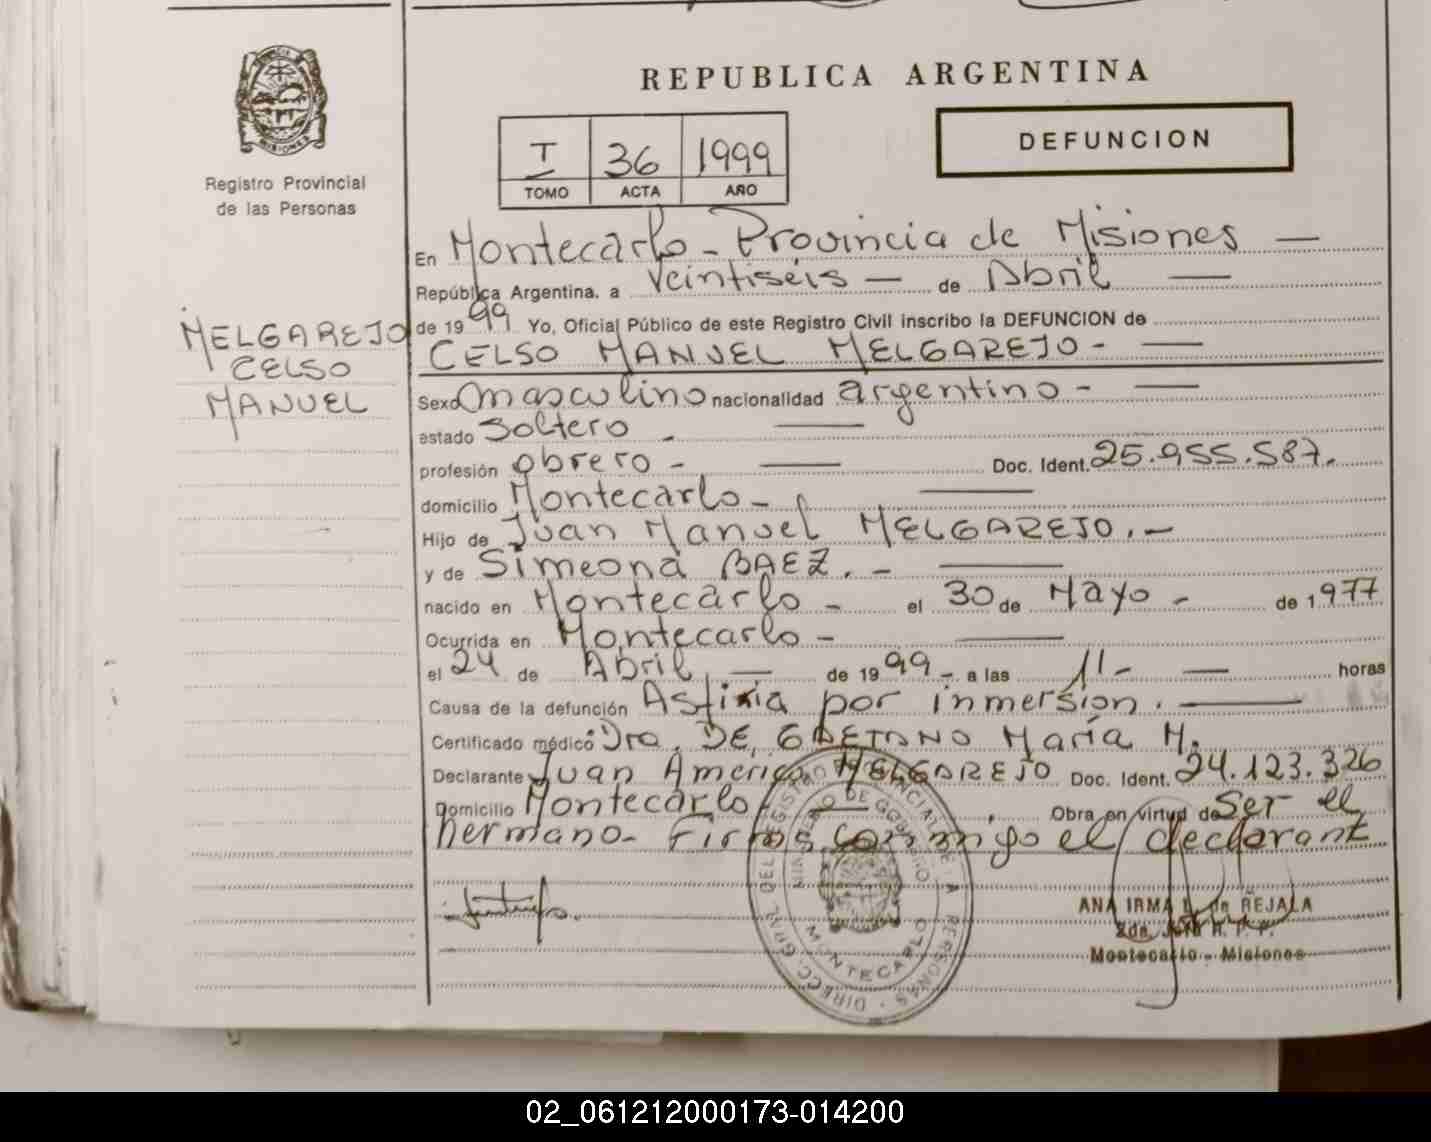 REPUBLICA ARGENTINA
DEFUNCION
I 36 1999
TOMO ACTA AÑO
Registro Provincial
de las Personas
MISIONES
MELGAREJO
CELSO
MANUEL
En Montecarlo - Provincia de Misiones —
República Argentina, a Veintiséis — de Abril —
de 1999 Yo, Oficial Público de este Registro Civil inscribo la DEFUNCION de
CELSO MANUEL MELGAREJO - —
Sexo masculino nacionalidad argentino - —
estado Soltero - —
profesión obrero - — Doc. Ident. 25.955.587.
domicilio Montecarlo - —
Hijo de Juan Manuel MELGAREJO. -
y de Simeona BAEZ. - —
nacido en Montecarlo - el 30 de Mayo - de 1977
Ocurrida en Montecarlo - —
el 24 de Abril, — de 1999 - a las 11 - — horas
Causa de la defunción Asfixia por inmersión. —
Certificado médico Dra. DE GAETANO María M.
Declarante Juan Américo MELGAREJO Doc. Ident. 24.123.326
Domicilio Montecarlo — . Obra en virtud de Ser el
hermano - Firma conmigo el declarant
ANA IRMA L. de REJALA
2da. Jefa R. P. P.
Montecarlo - Misiones
DIRECC. GRAL. DEL REGISTRO PROVINCIAL DE LAS PERSONAS
MINISTERIO DE GOBIERNO
MONTECARLO
02_061212000173-014200